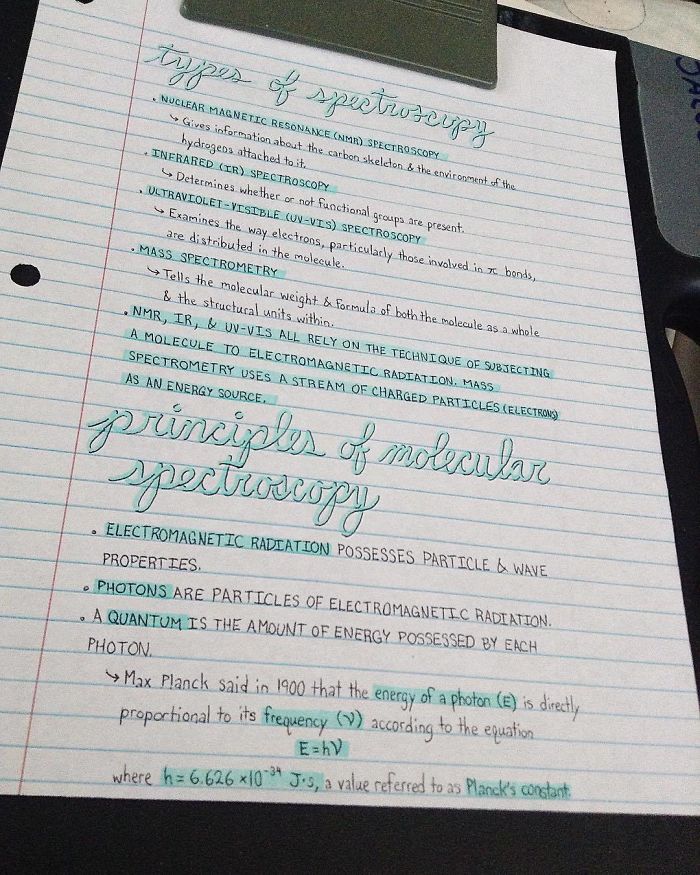 types of spectroscopy
• NUCLEAR MAGNETIC RESONANCE (NMR) SPECTROSCOPY
↳ Gives information about the carbon skeleton & the environment of the
hydrogens attached to it.
• INFRARED (IR) SPECTROSCOPY
↳ Determines whether or not functional groups are present.
• ULTRAVIOLET-VISIBLE (UV-VIS) SPECTROSCOPY
↳ Examines the way electrons, particularly those involved in π bonds,
are distributed in the molecule.
• MASS SPECTROMETRY
↳ Tells the molecular weight & formula of both the molecule as a whole
& the structural units within.
• NMR, IR, & UV-VIS ALL RELY ON THE TECHNIQUE OF SUBJECTING
A MOLECULE TO ELECTROMAGNETIC RADIATION. MASS
SPECTROMETRY USES A STREAM OF CHARGED PARTICLES (ELECTRONS)
AS AN ENERGY SOURCE.
principles of molecular
spectroscopy
• ELECTROMAGNETIC RADIATION POSSESSES PARTICLE & WAVE
PROPERTIES.
• PHOTONS ARE PARTICLES OF ELECTROMAGNETIC RADIATION.
• A QUANTUM IS THE AMOUNT OF ENERGY POSSESSED BY EACH
PHOTON.
↳ Max Planck said in 1900 that the energy of a photon (E) is directly
proportional to its frequency (ν) according to the equation
E=hν
where h = 6.626 ×10⁻³⁴ J·s, a value referred to as Planck's constant.